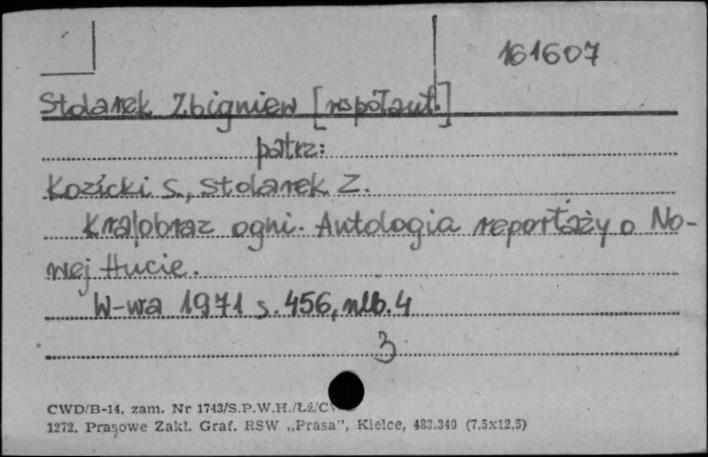 161607
Stolarek Zbigniew [współaut.]
patrz:
Kozicki S., Stolarek Z.
Krajobraz ogni. Antologia reportaży o No-
wej Hucie.
W-wa 1971 s. 456, nlb. 4
3
CWD/B-14, zam. Nr 1743/S.P.W.H./Łź/C
1272. Prasowe Zakł. Graf. RSW „Prasa", Kielce, 483.340 (7,5x12,5)